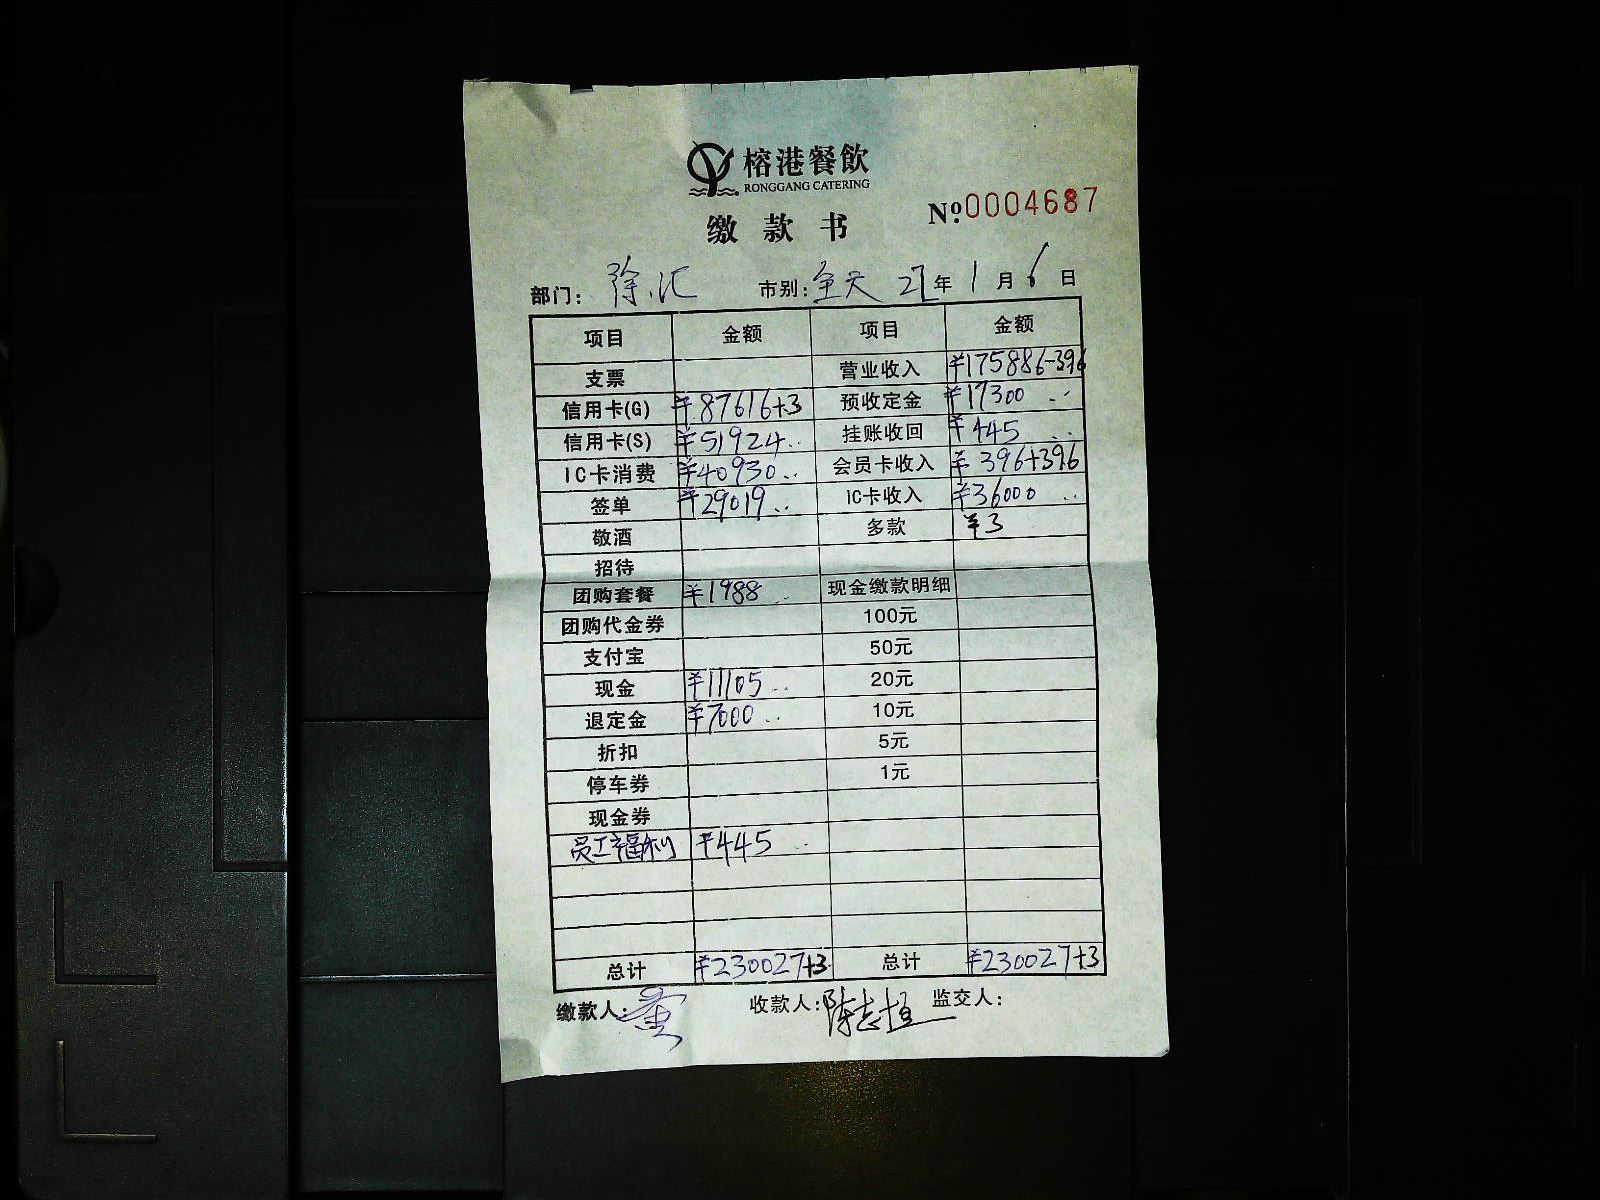 榕港餐飲
RONGGANG CATERING
缴款书
Nº.0004687
部门: 徐汇 市别: 全天 21年 1月 6日
项目 金额 项目 金额
支票 营业收入 ¥175886-396
信用卡(G) ¥87616+3 预收定金 ¥17300
信用卡(S) ¥51924 挂账收回 ¥445
IC卡消费 ¥40930 会员卡收入 ¥396+396
签单 ¥29019 IC卡收入 ¥36000
敬酒 多款 ¥3
招待
团购套餐 ¥1988 现金缴款明细
团购代金券 100元
支付宝 50元
现金 ¥11105 20元
退定金 ¥7000 10元
折扣 5元
停车券 1元
现金券
员工福利 ¥445
总计 ¥230027+3 总计 ¥230027+3
缴款人: 收款人: 陈志恒 监交人: